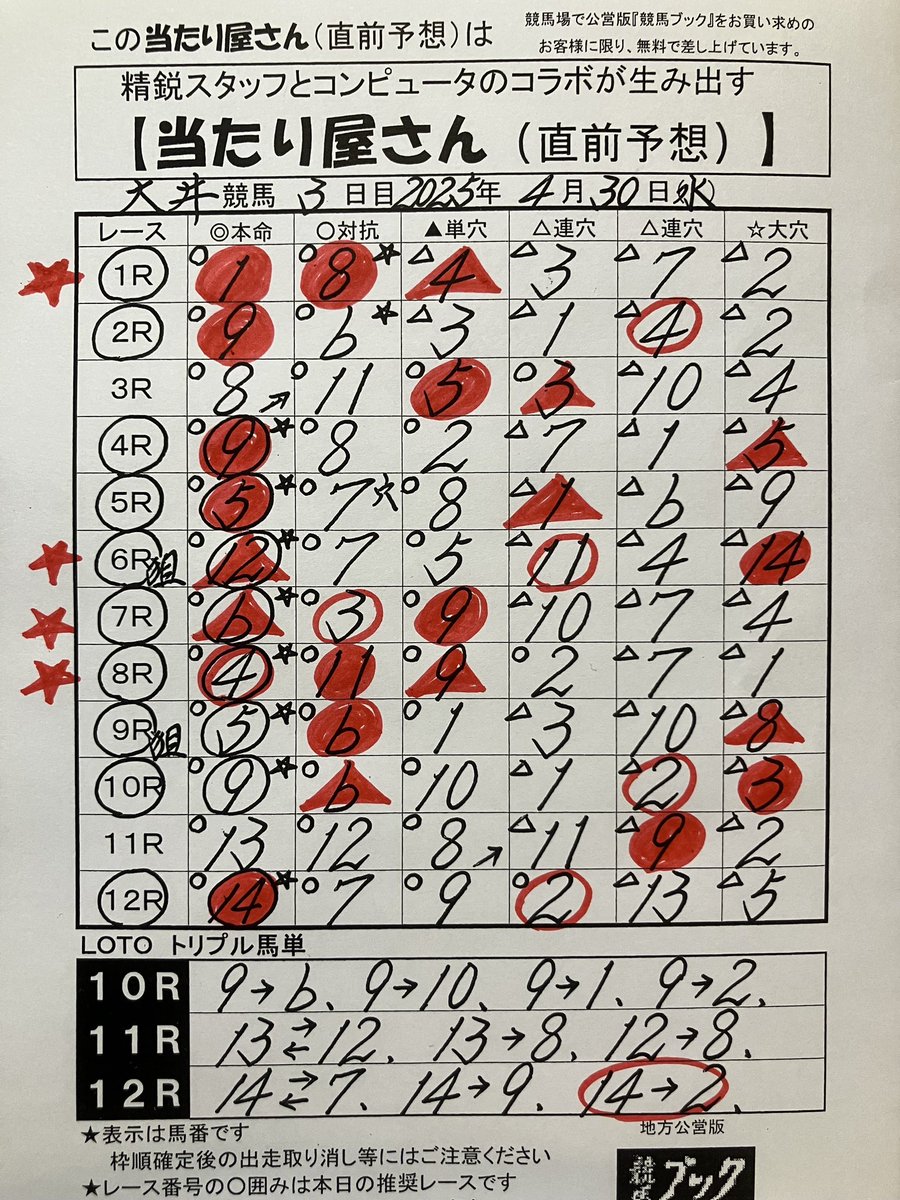 この当たり屋さん(直前予想)は
競馬場で公営版『競馬ブック』をお買い求めの
お客様に限り、無料で差し上げています。
精鋭スタッフとコンピュータのコラボが生み出す
【当たり屋さん(直前予想)】
大井競馬 3日目 2025年 4月30日(水)
レース ◎本命 ○対抗 ▲単穴 △連穴 △連穴 ☆大穴
★ 1R ○1 ○8★ △4 △3 △7 △2
2R ○9 ○6★ △3 △1 △4 △2
3R ○8→ ○11 ○5 ○3 △10 △4
4R ○9★ ○8 ○2 △7 △1 △5
5R ○5★ ○7穴 ○8 △1 △6 △9
★ 6R狙 ○12★ ○7 ○5 △11 △4 △14
★ 7R ○6★ ○3 ○9 △10 △7 △4
★ 8R ○4★ ○11 ○9 ○2 △7 △1
9R狙 ○5★ ○6 ○1 △3 △10 △8
10R ○9★ ○6 ○10 △1 △2 △3
11R ○13 ○12 ○8→ △11 △9 △2
12R ○14★ ○7 ○9 ○2 △13 △5
LOTO トリプル馬単
10R 9→6、9→10、9→1、9→2、
11R 13⇄12、13→8、12→8、
12R 14⇄7、14→9、14→2、
★表示は馬番です
枠順確定後の出走取り消し等にはご注意ください
★レース番号の○囲みは本日の推奨レースです
地方公営版
競馬ブック